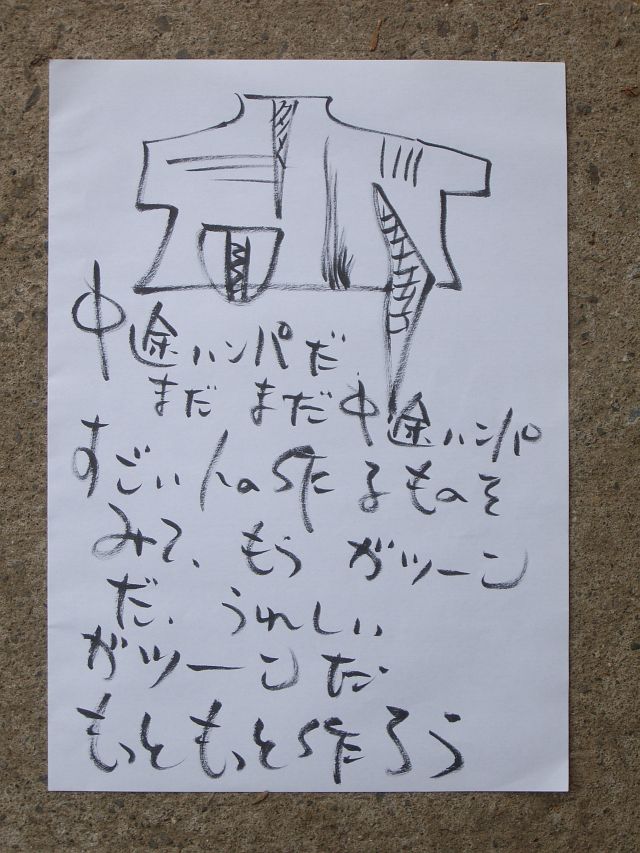 中途ハンパだ
まだ まだ中途ハンパ
すごい人の作るものを
みて、もう ガツーン
だ、うれしい
ガツーンだ
もっともっと作ろう